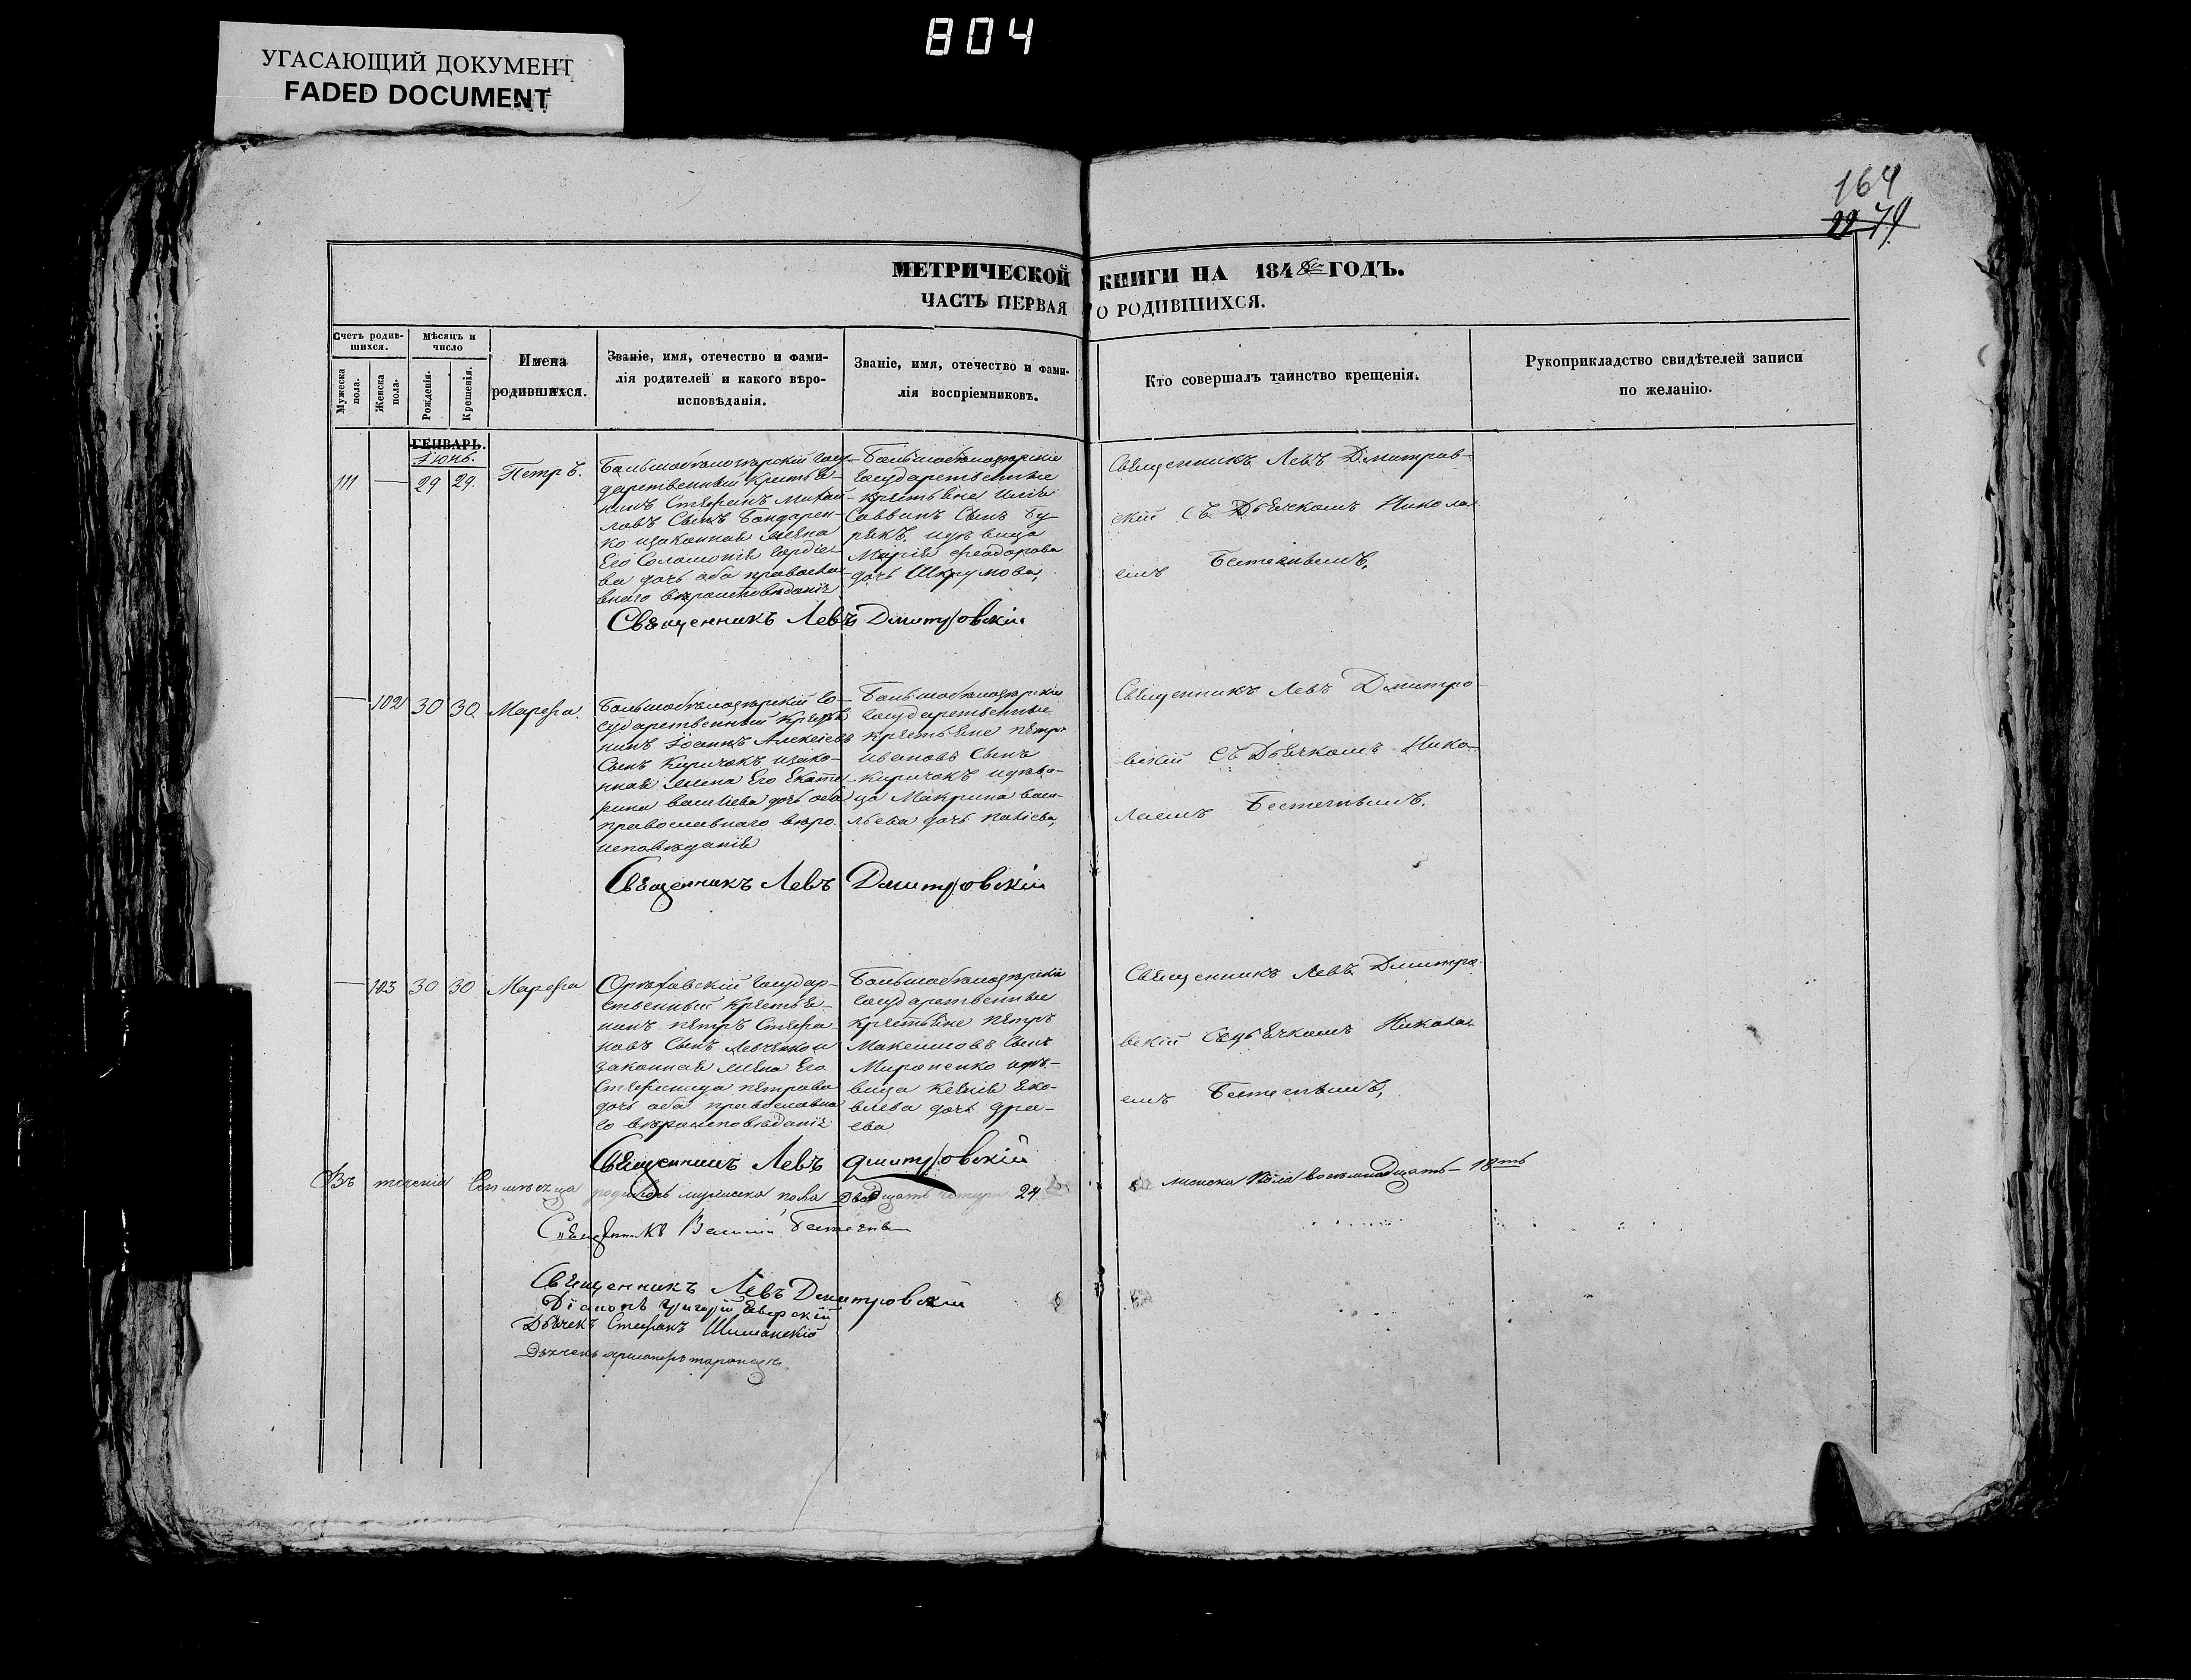 804
УГАСАЮЩИЙ ДОКУМЕНТ
FADED DOCUMENT
164
МЕТРИЧЕСКОЙ КНИГИ НА 184 ГОДЪ.
ЧАСТЬ ПЕРВАЯ О РОДИВШИХСЯ.
Счетъ родив-
шихся.
Мужеска
пола.
Женска
пола.
Мѣсяцъ и
число
Рожденія.
Крещенія.
Имена
родившихся.
Званіе, имя, отечество и фами-
лія родителей и какого вѣро-
исповѣданія.
Званіе, имя, отечество и фами-
лія воспріемниковъ.
Кто совершалъ таинство крещенія.
Рукоприкладство свидѣтелей записи
по желанію.
ГЕНВАРЬ.
Іюнь.
111
29
29.
Петръ.
Большебѣлозерскій госу-
дарственный крестья-
нинъ Стефанъ Михай-
ловъ Сынъ Бондарен-
ко изаконная жена
Его Соломонія
ва дочь оба правосла-
внаго вѣроисповѣданія
Большебѣлозерскіе
государственные
крестьяне
Саввинъ Сынъ Бу
рякъ, идѣвица
Марія Феодорова
дочь
Священникъ Левъ Димитров-
скій съ Дьячкомъ Никола
емъ
Священникъ Левъ Дмитровскій
102
30
30
Марѳа.
Большебѣлозерскій го-
сударственный крестья
нинъ Іоаннъ Алексіевъ
Сынъ Киричокъ изако-
нная жена Его Екате
рина дочь оба
православнаго вѣро
исповѣданія
Большебѣлозерскіе
государственные
крестьяне Петръ
Ивановъ Сынъ
Киричокъ идѣви-
ца Макрина Васи-
льева дочь
Священникъ Левъ Димитро
вскій съ Дьячкомъ Нико-
лаемъ
Священникъ Левъ Дмитровскій
103
30
30
Марѳа
Орѣховскій государ-
ственный крестья-
нинъ Петръ Стефа
новъ Сынъ Левченко и
законная жена Его
Стефанида Петрова
дочь оба православна
го вѣроисповѣданія
Большебѣлозерскіе
государственные
крестьяне Петръ
Максимовъ Сынъ
Мироненко идѣ-
вица Ксенія Яко-
влева дочь
Священникъ Левъ Дмитро
вскій Съдьячкомъ Никола
емъ
Священникъ Левъ Дмитровскій
Въ теченіи сего мѣсяца родилось мужеска пола двадцать четыре 24 женска пола восемнадцать 18ть
Священникъ
Священникъ Левъ Дмитровскій
Діаконъ Григорій
Дьячекъ Стефанъ Шиманскій